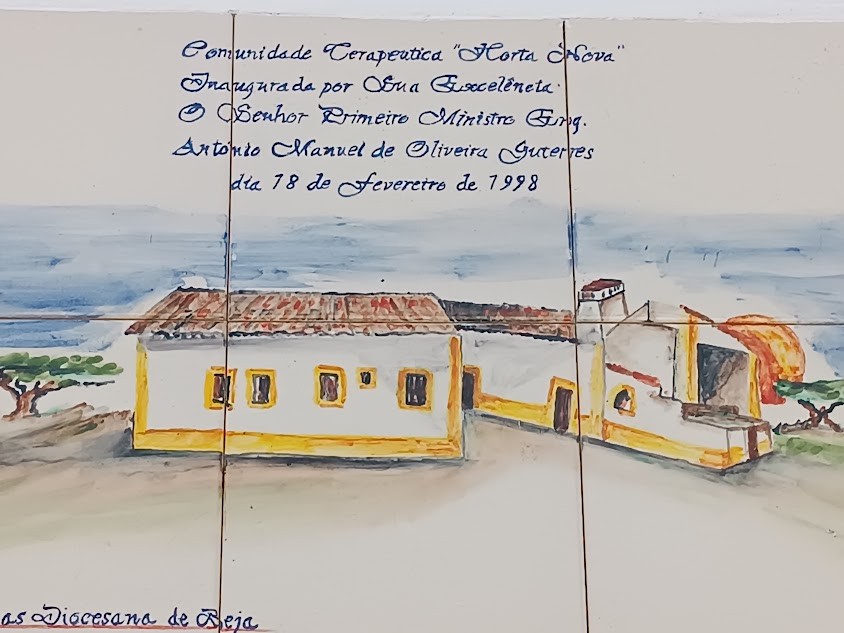 Comunidade Terapeutica "Horta Nova"
Inaugurada por Sua Excelência
O Senhor Primeiro Ministro Eng.
António Manuel de Oliveira Guterres
dia 18 de Fevereiro de 1998
as Diocesana de Beja